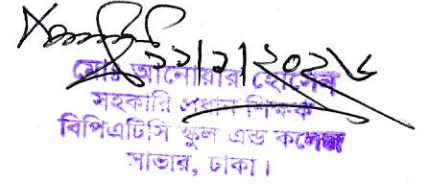 ২১/১/২০২৬
মোঃ আনোয়ার হোসেন
সহকারি প্রধান শিক্ষক
বিপিএটিসি স্কুল এন্ড কলেজ
সাভার, ঢাকা।